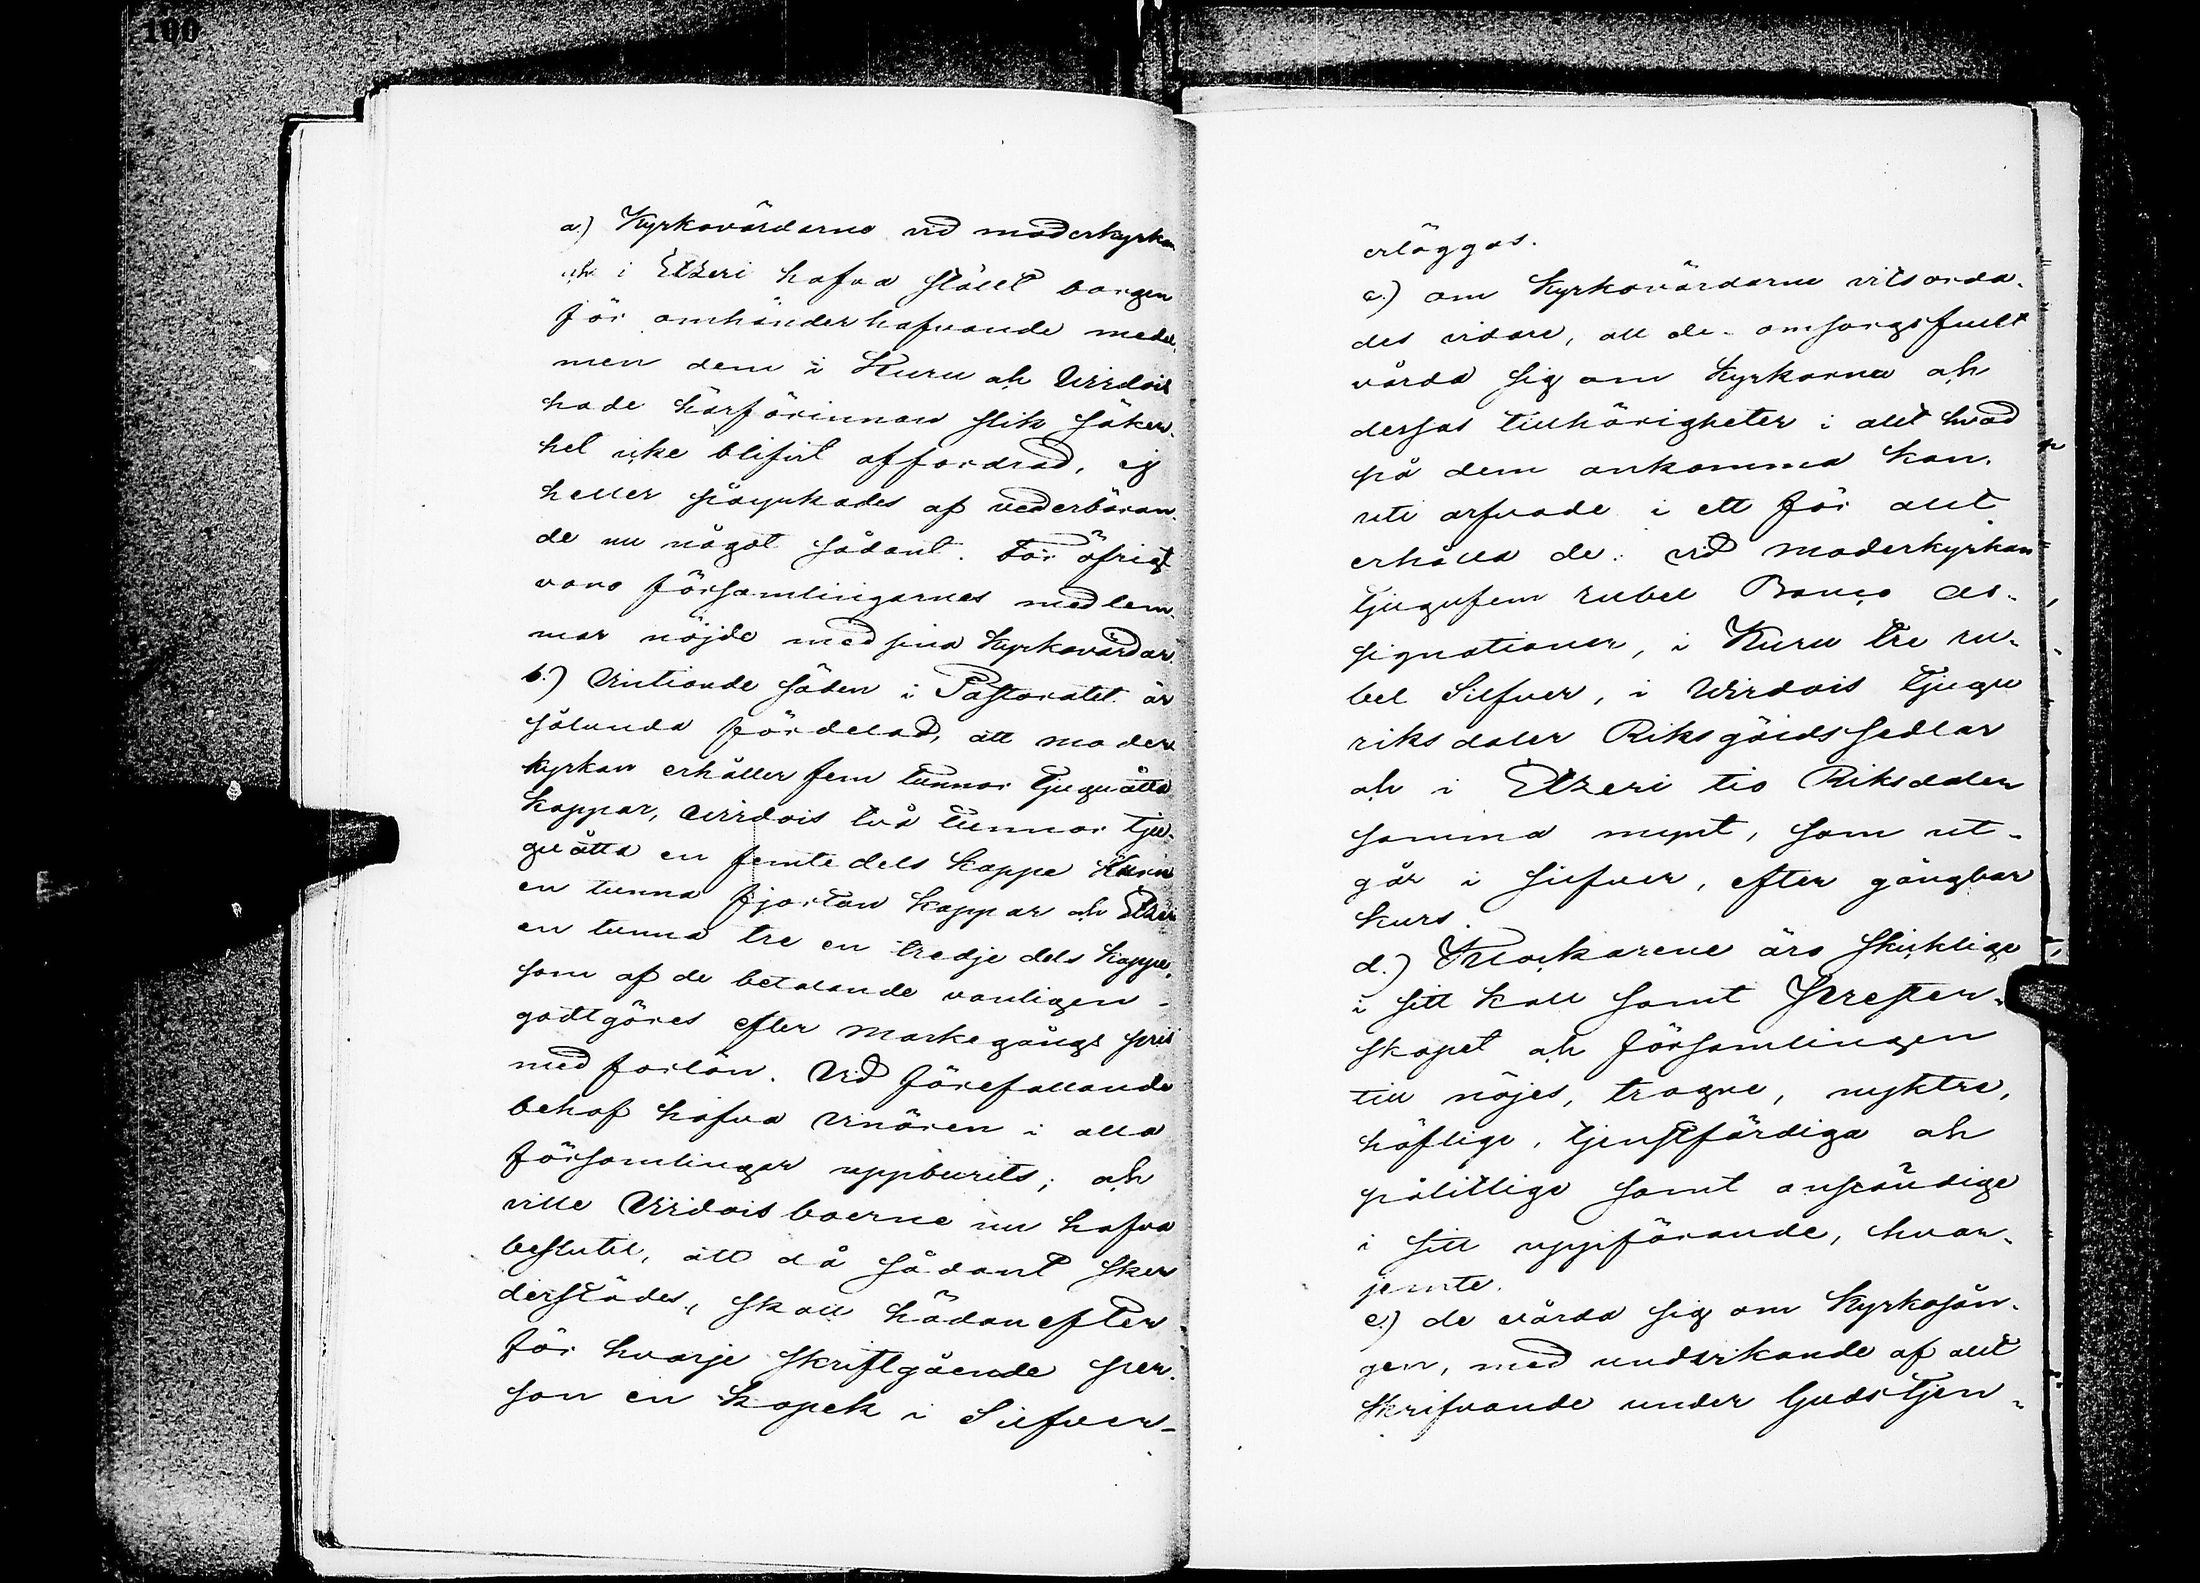 100
a.) Kyrkovärdarne vid moderkyrkan
och i Etzeri hafva stält borgen
för omhänderhafvande medel,
men dem i Kuru och Virdois
hade härförinnan slik säker-
het icke blifvit affordrad, ej
heller påyrkades af vederböran-
de nu något sådant. För öfrigt
voro församlingarnes medlem-
mar nöjde med sina Kyrkovärdar.
b.) Vintionde säden i Pastoratet är
sålunda fördelad, att moder
kyrkan erhåller fem tunnor tjuguåtta
kappar, Virdois två tunnor tju-
guåtta en femtedels kappe Kuru
en tunna fjorton kappar och Etzeri
en tunna tre en tredjedels kappe,
som af de betalande vanligen
godtgöres efter markegångs pris
med forlön. Vid förefallande
behof hafva vinören i alla
församlingar uppburits; och
ville Virdoisboerne nu hafva
beslutit, att då sådant sker
derstädes, skall hädanefter
för hvarje skriftgående per-
son en kopek i Silfver
erläggas.
c.) om Kyrkovärdarne vitsorda-
des vidare, att de omsorgsfullt
vårda sig om Kyrkorna och
dessas tillhörigheter i allt hvad
på dem ankomma kan.
uti arfvode i ett för allt
erhålla de: vid moderkyrkan
tjugufem rubel Banco As-
signationer, i Kuru tre ru-
bel Silfver, i Virdois tjugu
riksdaler Riksgäldssedlar
och i Etzeri tio Riksdaler
samma mynt, som ut-
går i silfver, efter gångbar
kurs.
d.) Klockarene äro skicklige
i sitt kall samt Prester-
skapet och församlingen
till nöjes, trogne, nyktre,
höflige, tjenstfärdiga och
pålitlige samt anständige
i sitt uppförande, hvar-
jemte.
e.) de vårda sig om Kyrkosån-
gen, med undvikande af allt
skrifvande under Gudstjen-